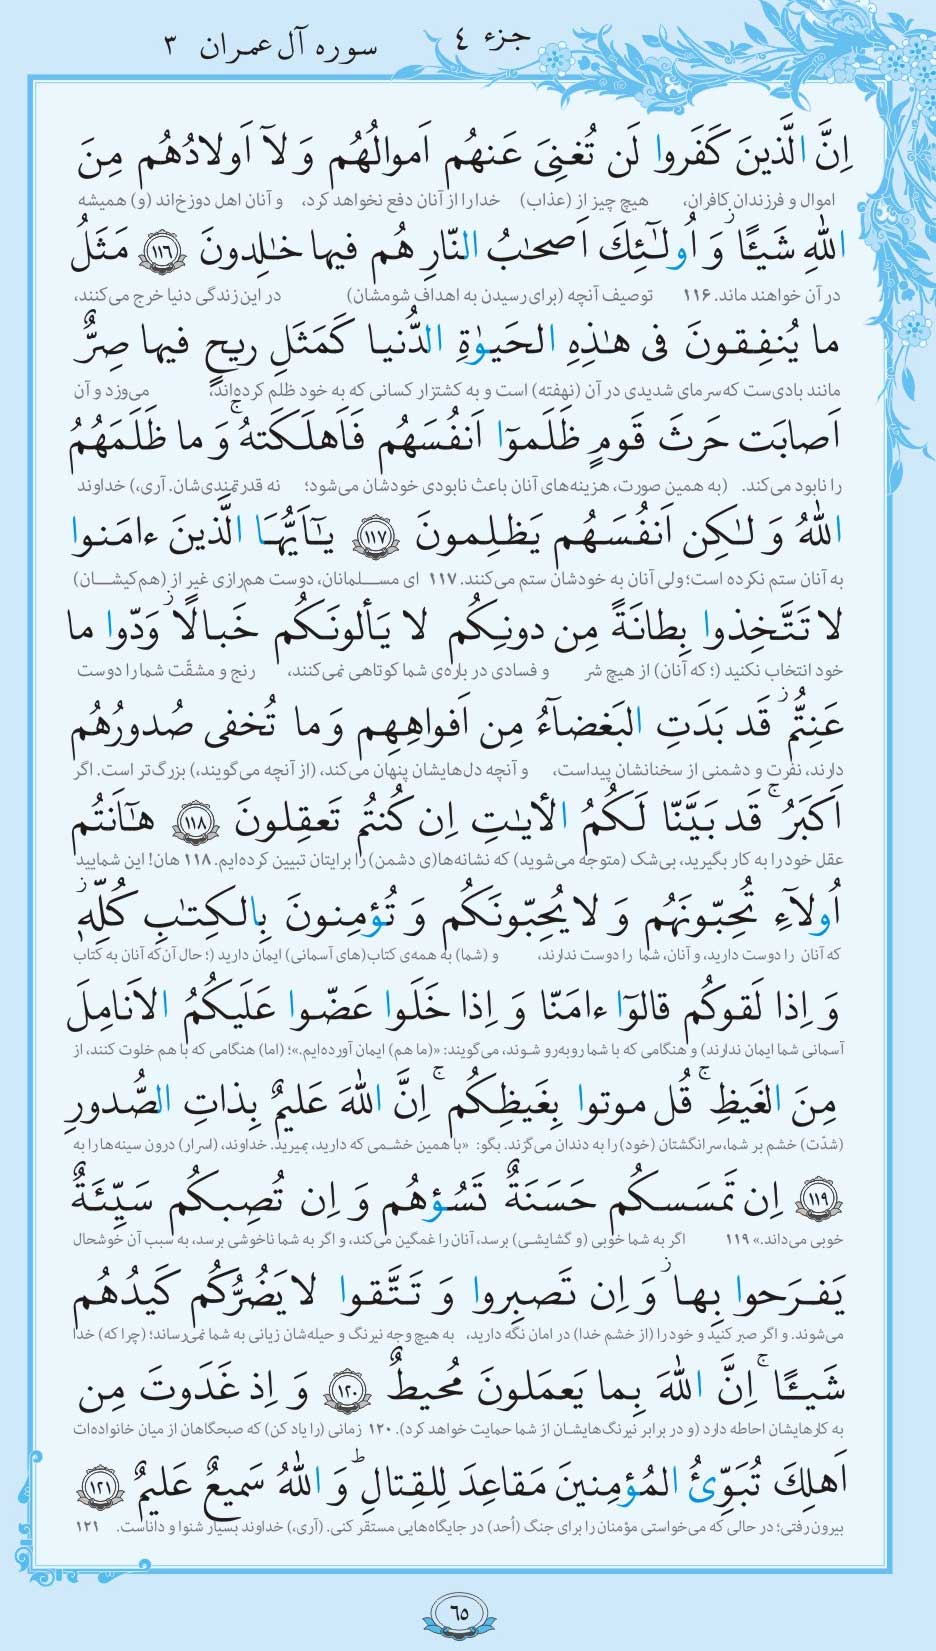 جزء ٤
سوره آل عمران ٣
اِنَّ الَّذينَ كَفَروا لَن تُغنِيَ عَنهُم اَموالُهُم وَ لآ اَولادُهُم مِنَ
اموال و فرزندان کافران، هیچ چیز از (عذاب) خدا را از آنان دفع نخواهد کرد، و آنان اهل دوزخ‌اند (و) همیشه
اللهِ شَيئًا ۖ وَ اُولٰٓئِكَ اَصحٰبُ النّارِ هُم فيها خٰلِدونَ ١١٦ مَثَلُ
در آن خواهند ماند. ۱۱۶ توصیف آنچه (برای رسیدن به اهداف شومشان) در این زندگی دنیا خرج می‌کنند،
ما يُنفِقونَ فى هٰذِهِ الحَيوٰةِ الدُّنيا كَمَثَلِ ريحٍ فيها صِرٌّ
مانند بادی‌ست که سرمای شدیدی در آن (نهفته) است و به کشتزار کسانی که به خود ظلم کرده‌اند، می‌وزد و آن
اَصابَت حَرثَ قَومٍ ظَلَموٓا اَنفُسَهُم فَاَهلَكَتهُ ۚ وَ ما ظَلَمَهُمُ
را نابود می‌کند. (به همین صورت، هزینه‌های آنان باعث نابودی خودشان می‌شود؛ نه قدرتمندی‌شان. آری،) خداوند
اللهُ وَ لٰكِن اَنفُسَهُم يَظلِمونَ ١١٧ يٰٓاَيُّهَا الَّذينَ ءامَنوا
به آنان ستم نکرده است؛ ولی آنان به خودشان ستم می‌کنند. ۱۱۷ ای مسـلمانان، دوست هم‌رازی غیر از (هم‌کیشـان)
لا تَتَّخِذوا بِطانَةً مِن دونِكُم لا يَألونَكُم خَبالًا ۖ وَدّوا ما
خود انتخاب نکنید (؛ که آنان) از هیچ شر و فسادی در باره‌ی شما کوتاهی نمی‌کنند، رنج و مشقّت شما را دوست
عَنِتُّم ۖ قَد بَدَتِ البَغضآءُ مِن اَفواهِهِم وَ ما تُخفى صُدورُهُم
دارند، نفرت و دشمنی از سخنانشان پیداست، و آنچه دل‌هایشان پنهان می‌کند، (از آنچه می‌گویند،) بزرگ‌تر است. اگر
اَكبَرُ ۚ قَد بَيَّنّا لَكُمُ الأيٰتِ اِن كُنتُم تَعقِلونَ ١١٨ هٰٓاَنتُم
عقل خود را به کار بگیرید، بی‌شک (متوجه می‌شوید) که نشانه‌ها(ی دشمن) را برایتان تبیین کرده‌ایم. ۱۱۸ هان! این شمایید
اُولآءِ تُحِبّونَهُم وَ لا يُحِبّونَكُم وَ تُؤمِنونَ بِالكِتٰبِ كُلِّهٖ ۖ
که آنان را دوست دارید، و آنان، شما را دوست ندارند، و (شما) به همه‌ی کتاب(های آسمانی) ایمان دارید (؛ حال آن‌که آنان به کتاب
وَ اِذا لَقوكُم قالوٓا ءامَنّا وَ اِذا خَلَوا عَضّوا عَلَيكُمُ الاَنامِلَ
آسمانی شما ایمان ندارند) و هنگامی که با شما روبه‌رو شوند، می‌گویند: «(ما هم) ایمان آورده‌ایم.»؛ (اما) هنگامی که با هم خلوت کنند، از
مِنَ الغَيظِ ۚ قُل موتوا بِغَيظِكُم ۚ اِنَّ اللهَ عَليمٌ بِذاتِ الصُّدورِ
(شدّت) خشم بر شما، سرانگشتان (خود) را به دندان می‌گزند. بگو: «با همین خشمی که دارید، بمیرید. خداوند، (اسرار) درون سینه‌ها را به
١١٩ اِن تَمسَسكُم حَسَنَةٌ تَسُؤهُم وَ اِن تُصِبكُم سَيِّئَةٌ
خوبی می‌داند.» ۱۱۹ اگر به شما خوبی (و گشایشی) برسد، آنان را غمگین می‌کند، و اگر به شما ناخوشی برسد، به سبب آن خوشحال
يَفرَحوا بِها ۖ وَ اِن تَصبِروا وَ تَتَّقوا لا يَضُرُّكُم كَيدُهُم
می‌شوند. و اگر صبر کنید و خود را (از خشم خدا) در امان نگه دارید، به هیچ وجه نیرنگ و حیله‌شان زیانی به شما نمی‌رساند؛ (چرا که) خدا
شَيئًا ۚ اِنَّ اللهَ بِما يَعمَلونَ مُحيطٌ ١٢٠ وَ اِذ غَدَوتَ مِن
به کارهایشان احاطه دارد (و در برابر نیرنگ‌هایشان از شما حمایت خواهد کرد). ۱۲۰ زمانی (را یاد کن) که صبحگاهان از میان خانواده‌ات
اَهلِكَ تُبَوِّئُ المُؤمِنينَ مَقاعِدَ لِلقِتالِ ؕ وَ اللهُ سَميعٌ عَليمٌ ١٢١
بیرون رفتی؛ در حالی که می‌خواستی مؤمنان را برای جنگ (اُحد) در جایگاه‌هایی مستقر کنی. (آری،) خداوند بسیار شنوا و داناست. ۱۲۱
٦٥